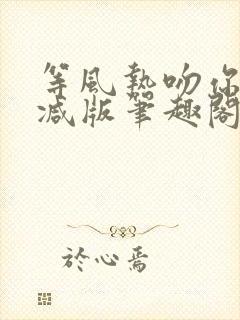 等風熱吻你
減版筆趣閣
於心焉